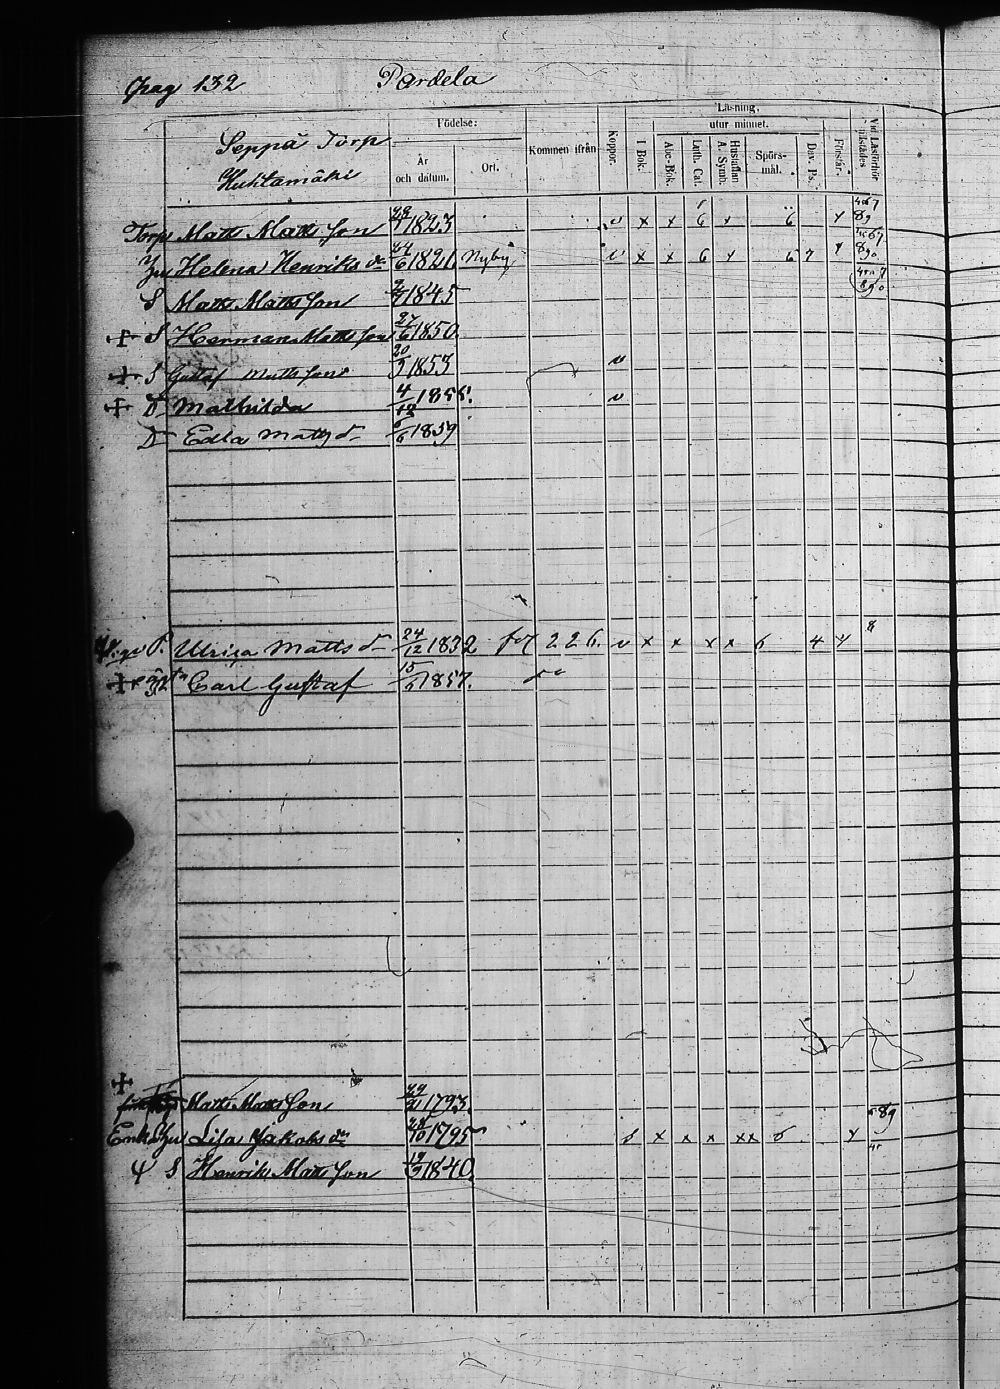 Pag 132 Pardela
Seppä Torp
Huhtamäki
Födelse:
År och datum.
Ort.
Kommen ifrån
Koppor.
Läsning,
utur minnet.
I Bok.
Abc-Bok.
Luth. Cat.
Hustaflan A. Symb.
Spörs-mål.
Dav. Ps.
Förstår.
Vid Läsförhör tilstädes
Torp Matts Matts Son 1823 v x x 6 x 6 x 89
Hu Helena Henriks dr 1821 Nyby v x x 6 x 6 7 x 890
S Matts Matts Son 1845
+ S Herman Matts Son 27/6 1850.
+ S Gustaf Matts Son 20/9 1853 v
+ D Mathilda 4/12 1855. v
D Edla Matts d 1859
P. Ulrica Matts d 24/12 1832 226. v x x x x 6 4 x 8
+ Carl Gustaf 15 1857. do
+
Matts Matts Son 1793.
Enka Hu Lisa Jakobs dr 28/10 1795 x x x xx x 89
S Henrik Matts Son 19/9 1840.